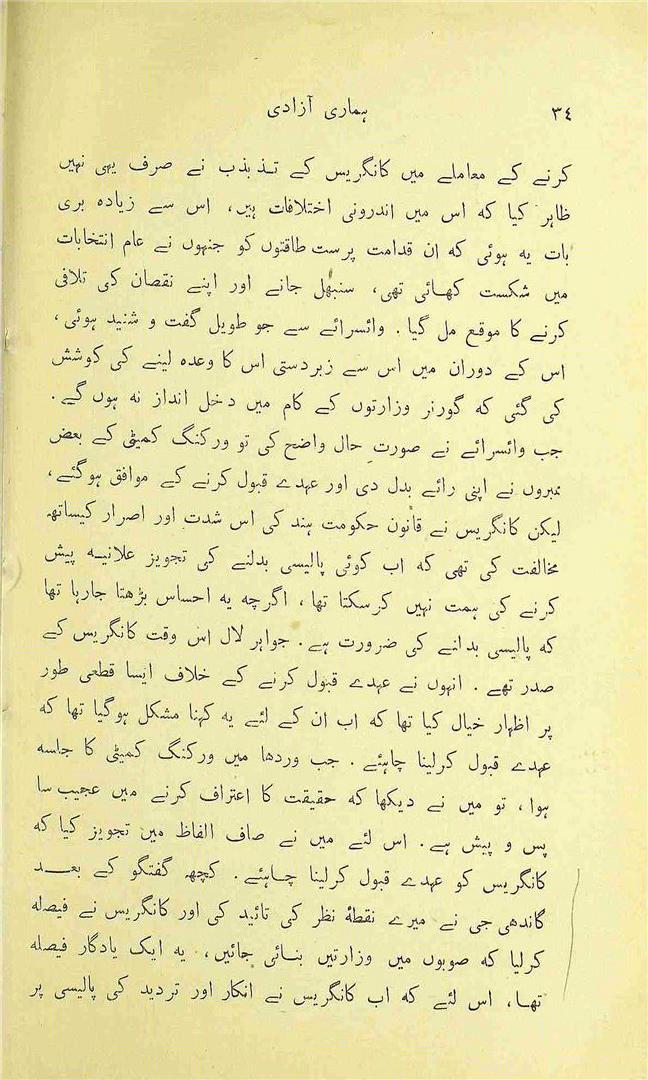 ٣٤
ہماری آزادی
کرنے کے معاملے میں کانگریس کے تذبذب نے صرف یہی نہیں
ظاہر کیا کہ اس میں اندرونی اختلافات ہیں، اس سے زیادہ بری
بات یہ ہوئی کہ ان قدامت پرست طاقتوں کو جنہوں نے عام انتخابات
میں شکست کھائی تھی، سنبھل جانے اور اپنے نقصان کی تلافی
کرنے کا موقع مل گیا۔ وائسرائے سے جو طویل گفت و شنید ہوئی،
اس کے دوران میں اس سے زبردستی اس کا وعدہ لینے کی کوشش
کی گئی کہ گورنر وزارتوں کے کام میں دخل انداز نہ ہوں گے۔
جب وائسرائے نے صورتِ حال واضح کی تو ورکنگ کمیٹی کے بعض
ممبروں نے اپنی رائے بدل دی اور عہدے قبول کرنے کے موافق ہوگئے،
لیکن کانگریس نے قانون حکومت ہند کی اس شدت اور اصرار کیساتھ
مخالفت کی تھی کہ اب کوئی پالیسی بدلنے کی تجویز علانیہ پیش
کرنے کی ہمت نہیں کرسکتا تھا، اگرچہ یہ احساس بڑھتا جارہا تھا
کہ پالیسی بدلنے کی ضرورت ہے۔ جواہر لال اس وقت کانگریس کے
صدر تھے۔ انہوں نے عہدے قبول کرنے کے خلاف ایسا قطعی طور
پر اظہار خیال کیا تھا کہ اب ان کے لئے یہ کہنا مشکل ہوگیا تھا کہ
عہدے قبول کرلینا چاہئے۔ جب وردھا میں ورکنگ کمیٹی کا جلسہ
ہوا، تو میں نے دیکھا کہ حقیقت کا اعتراف کرنے میں عجیب سا
پس و پیش ہے۔ اس لئے میں نے صاف الفاظ میں تجویز کیا کہ
کانگریس کو عہدے قبول کرلینا چاہئے۔ کچھ گفتگو کے بعد
گاندھی جی نے میرے نقطۂ نظر کی تائید کی اور کانگریس نے فیصلہ
کرلیا کہ صوبوں میں وزارتیں بنائی جائیں، یہ ایک یادگار فیصلہ
تھا، اس لئے کہ اب کانگریس نے انکار اور تردید کی پالیسی پر